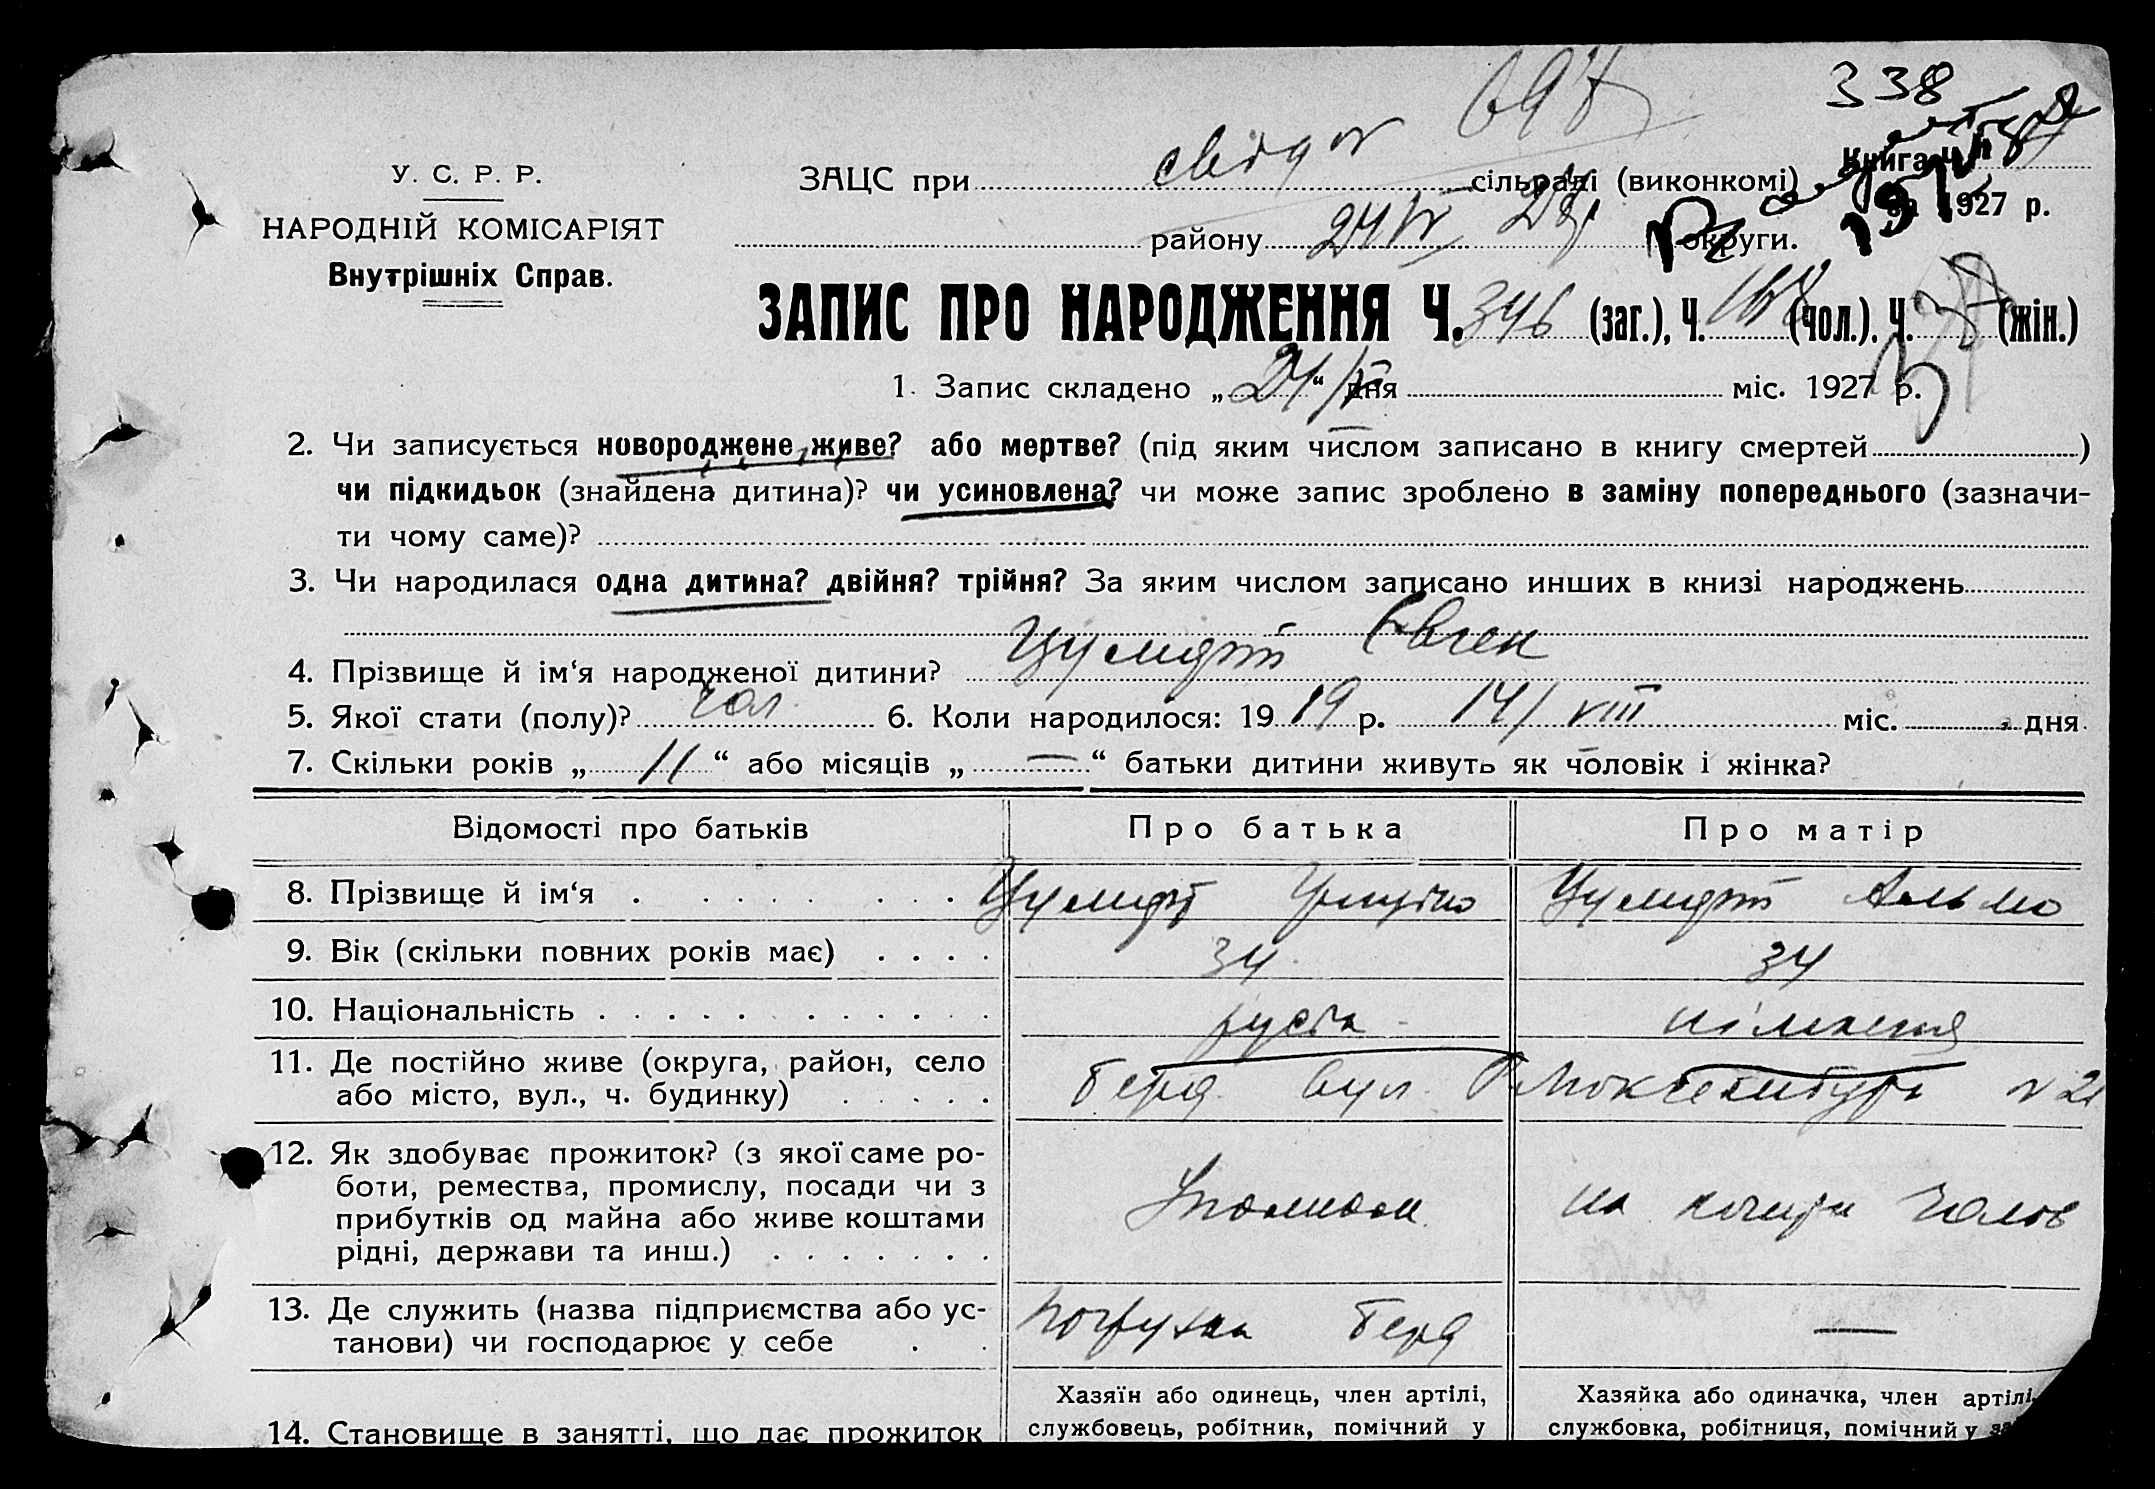 338
У. С. Р. Р.
НАРОДНІЙ КОМІСАРІЯТ
Внутрішніх Справ.
ЗАЦС при сільраді (виконкомі)
Книга Ч.
1927 р.
району округи.
ЗАПИС ПРО НАРОДЖЕННЯ Ч. 346 (заг.), Ч. 168 (чол.). Ч. (жін.)
1. Запис складено „ 24/ “ дня міс. 1927 р.
2. Чи записується новороджене живе? або мертве? (під яким числом записано в книгу смертей )
чи підкидьок (знайдена дитина)? чи усиновлена? чи може запис зроблено в заміну попереднього (зазначи-
ти чому саме)?
3. Чи народилася одна дитина? двійня? трійня? За яким числом записано инших в книзі народжень
4. Прізвище й ім‘я народженої дитини? Евген
5. Якої стати (полу)? чол 6. Коли народилося: 19 19 р. 14/ VIII міс. дня
7. Скільки років „ 11 “ або місяців „ — “ батьки дитини живуть як чоловік і жінка?
Відомості про батьків Про батька Про матір
8. Прізвище й ім‘я
9. Вік (скільки повних років має) 34 34
10. Національність руск
11. Де постійно живе (округа, район, село
або місто, вул., ч. будинку) Берд. вул.
12. Як здобуває прожиток? (з якої саме ро-
боти, ремества, промислу, посади чи з
прибутків од майна або живе коштами
рідні, держави та инш.) на кошти чолов
13. Де служить (назва підприємства або ус-
танови) чи господарює у себе Берд —
Хазяїн або одинець, член артілі, Хазяйка або одиначка, член артілі
14. Становище в занятті, що дає прожиток службовець, робітник, помічний у службовка, робітниця, помічний у